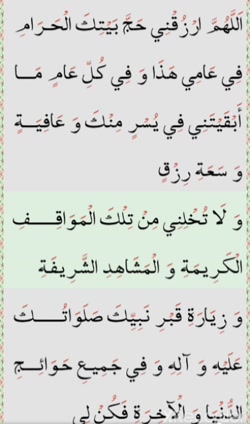 اَللَّهُمَّ ارْزُقْنِي حَجَّ بَيْتِكَ الْحَرَامِ
فِي عَامِي هَذَا وَ فِي كُلِّ عَامٍ مَا
أَبْقَيْتَنِي فِي يُسْرٍ مِنْكَ وَ عَافِيَةٍ
وَ سَعَةِ رِزْقٍ
وَ لَا تُخْلِنِي مِنْ تِلْكَ الْمَوَاقِفِ
الْكَرِيمَةِ وَ الْمَشَاهِدِ الشَّرِيفَةِ
وَ زِيَارَةِ قَبْرِ نَبِيِّكَ صَلَوَاتُكَ
عَلَيْهِ وَ آلِهِ وَ فِي جَمِيعِ حَوَائِجِ
الدُّنْيَا وَ الْآخِرَةِ فَكُنْ لِي